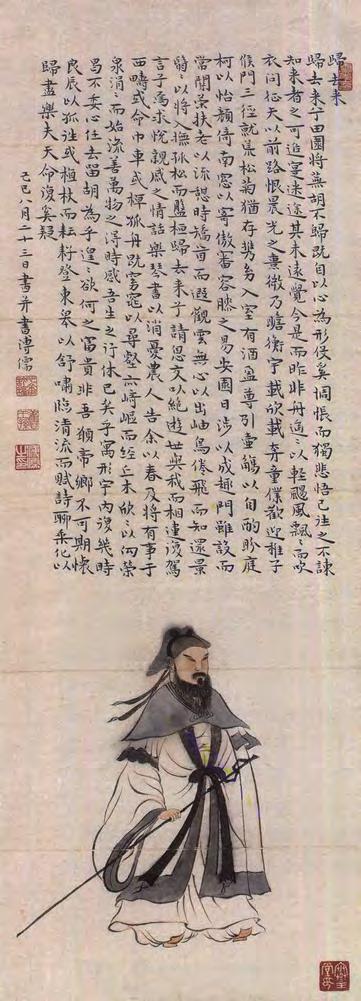 歸去来
歸去来兮田園將蕪胡不歸既自以心為形役奚惆悵而獨悲悟已往之不諫
知来者之可追寔迷途其未遠覺今是而昨非舟遥〻以輕颺風飄〻而吹
衣问征夫以前路恨晨光之熹微乃瞻衡宇載欣載奔童僕歡迎稚子
候門三徑就荒松菊猶存携幼入室有酒盈尊引壷觴以自酌眄庭
柯以怡顏倚南窓以寄傲審容膝之易安園日涉以成趣門雖設而
常関策扶老以流憩時矯首而遐觀雲無心以出岫鳥倦飛而知還景
翳〻以將入撫孤松而盤桓歸去来兮請息交以絶遊世與我而相違復駕
言兮焉求悦親戚之情話樂琴書以消憂農人告余以春及將有事于
西疇或命巾車或棹孤舟既窈窕以尋壑亦崎嶇而經丘木欣〻以向榮
泉涓〻而始流善萬物之得時感吾生之行休已矣乎寓形宇内復幾時
曷不委心任去留胡為乎遑〻欲何之富貴非吾願帝鄉不可期懷
良辰以孤往或植杖而耘耔登東皋以舒嘯臨清流而賦詩聊乘化以
歸盡樂夫天命復奚疑
己巳八月二十三日書并畫溥儒